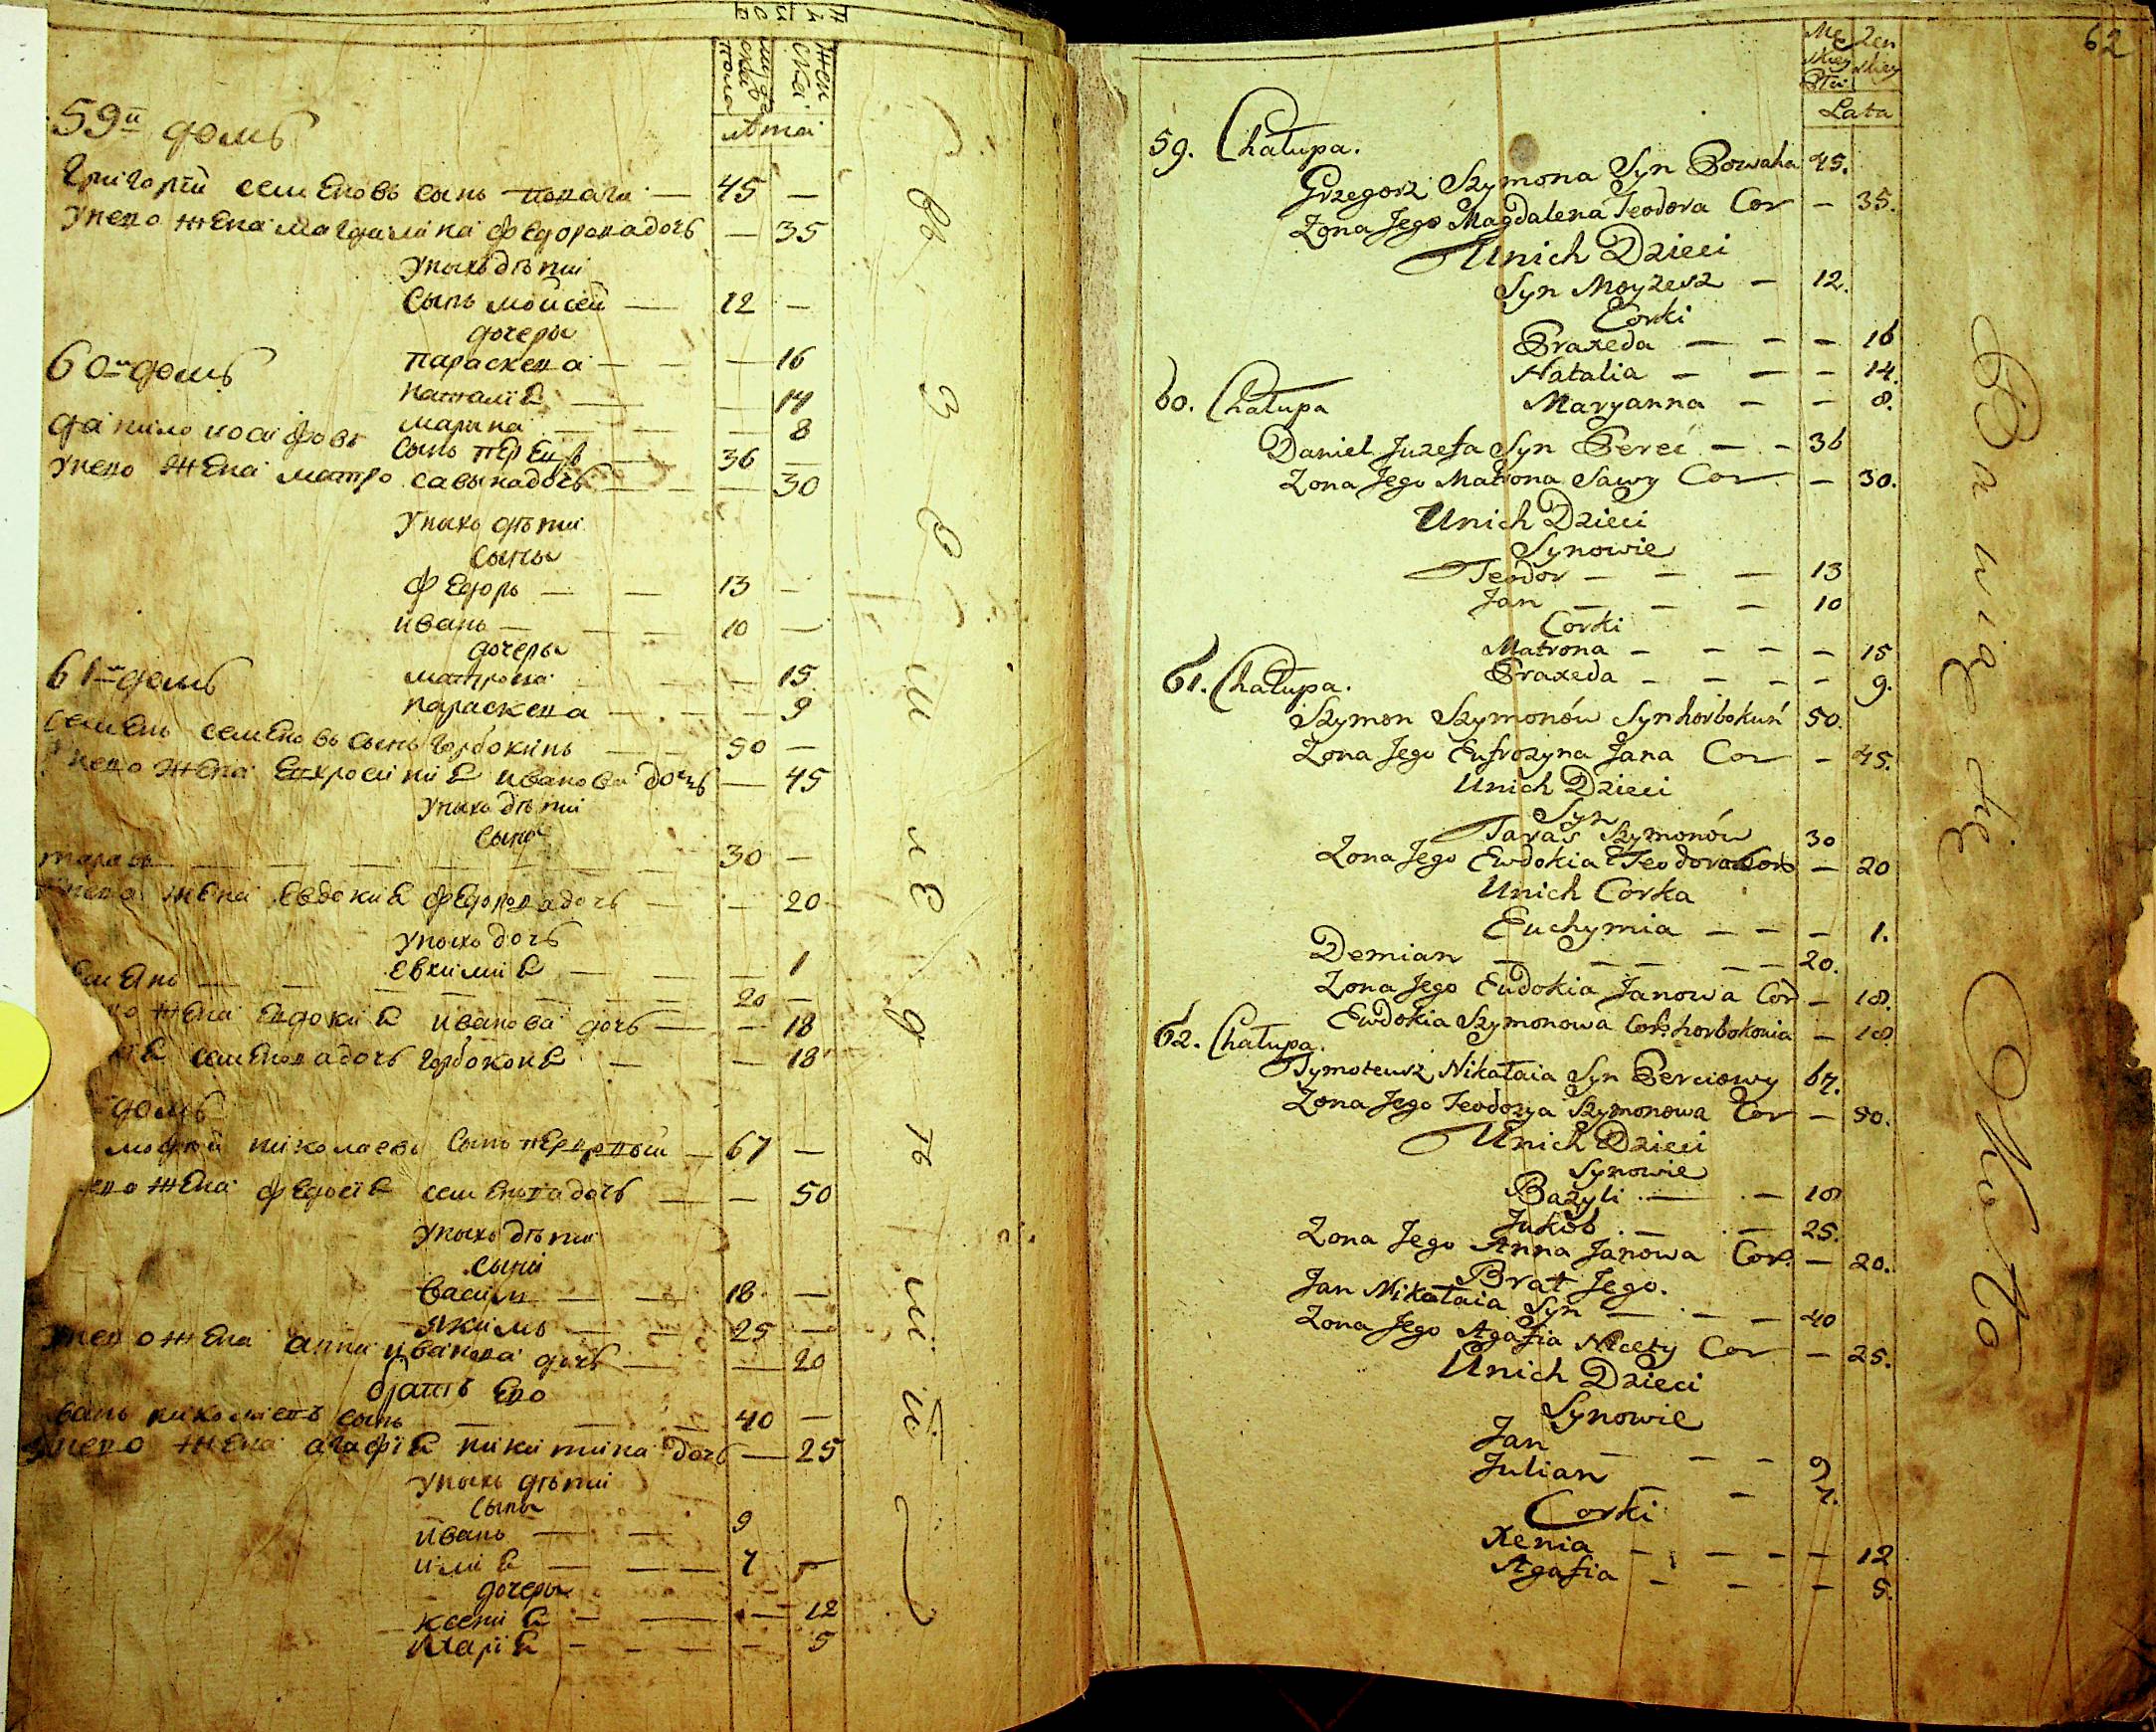 59й домъ
мужеска пола
женска
лѣта
Григорїй семеновъ сынъ повага — 45 —
унего жена магдалина федорова дочь — 35
унихъ дѣти
сынъ мойсей — 12 —
дочеры
параскева — — — 16
наталїя — — 14
марина — — 8
60й домъ
данило иосифовъ сынъ перецъ — 36 —
унего жена матро савына дочь — — 30
унихъ дѣти
сыны
федоръ — — 13 —
иванъ — — — 10 —
дочеры
матрона — — 15
параскева — — — 9
61й домъ
семенъ семеновъ сынъ горбоконь — — 50 —
унего жена евхросинїя иванова дочь — 45
унихъ дѣти
сыны
тарасъ — — — — 30 —
унего жена евдокия федорова дочь — — 20
унихъ дочь
евхимия — — — 1
— — — 20 —
жена евдокия иванова дочь — — 18
семенова дочь горбоконя — — 18
домъ
николаевъ сынъ — 67 —
жена федосїя семенова дочь — — 50
унихъ дѣти
сыны
василь — — 18 —
якимъ — — 25 —
унего жена анна иванова дочь — — 20
братъ его
николаевъ сынъ — — — 40 —
унего жена агафїя никитина дочь — 25
унихъ дѣти
сыны
иванъ — — 9
илия — — — 7 —
дочеры
ксения — — — 12
марїя — — — — 5
возсоединѣтий
62
Męzkiey Płci
Zenskiey
Lata
59. Chałupa.
Grzegorz Szymona Syn Powaha 45.
Zona Jego Magdalena Teodora Cor — 35.
Unich Dzieci
Syn Moyzesz — 12.
Corki
Praxeda — — — 16
Natalia — — — 14.
Maryanna — — 8.
60. Chałupa
Daniel Juzefa Syn Pereć — — 36
Zona Jego Matrona Sawy Cor — 30.
Unich Dzieci
Synowie
Teodor — — — 13
Jan — — — 10
Corki
Matrona — — — — 15
Praxeda — — — — 9.
61. Chałupa.
Szymon Szymonów Syn horbokuń 50.
Zona Jego Eufrozyna Jana Cor — 45.
Unich Dzieci
Syn
Taras Szymonów 30
Zona Jego Ewdokia Teodora Cor — 20
Unich Corka
Euchymia — — — 1.
Demian — — — — 20.
Zona Jego Eudokia Janowa Cor — 18.
Ewdokia Szymonowa Cor horbokonia — 18
62. Chałupa.
Tymoteusz Nikałaia Syn Perciowy 67.
Zona Jego Teodozya Szymonowa Cor — 50.
Unich Dzieci
Synowie
Bazyli — — 18
Jakób — — 25.
Zona Jego Anna Janowa Cor. — 20.
Brat Jego.
Jan Mikałaia Syn — — — 40
Zona Jego Agafia Nicety Cor — 25.
Unich Dzieci
Synowie
Jan — — — 9
Julian — — 7.
Corki
Xenia — — — — 12
Agafia — — — 5.
Bawiąc się Około